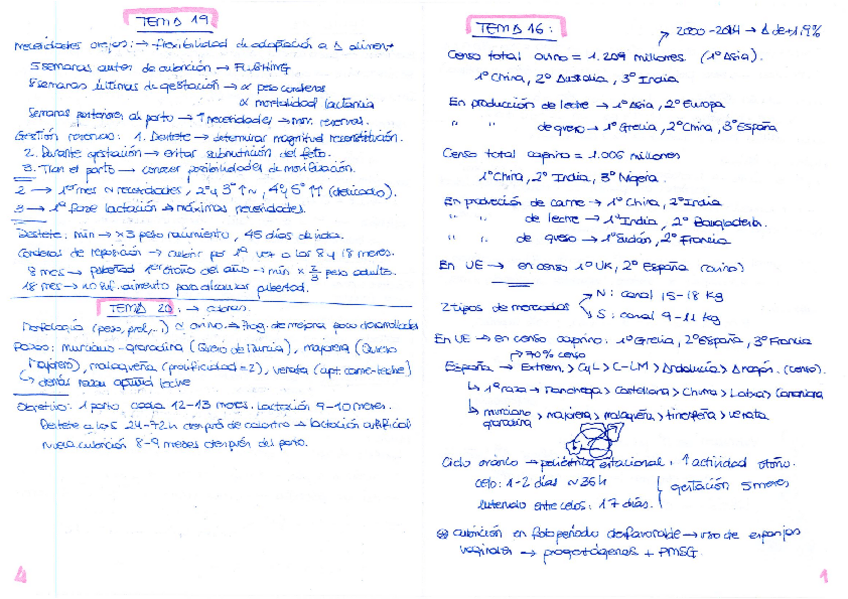 TEMA 19
Necesidades ovejas: → flexibilidad de adaptación a Δ aliment
5 semanas antes de cubrición → FLUSHING
8 semanas últimas de gestación → α peso corderos
α mortalidad lactancia
Semanas posteriores al parto → ↑ necesidades → mov. reservas.
Gestión reservas: 1. Destete → determinar magnitud reconstitución.
2. Durante gestación → evitar subnutrición del feto.
3. Tras el parto → conocer posibilidades de movilización.
2 → 1º mes ~ necesidades, 2º y 3º ↑ ~, 4º y 5º ↑↑ (delicado).
3 → 1ª fase lactación → máximas necesidades.
Destete: mín → x3 peso nacimiento, 45 días de vida.
Corderas de reposición → cubrir por 1ª vez a los 8 y 18 meses.
8 mes → pubertad 1er otoño del año → mín x 2/3 peso adulto.
18 mes → no suf. alimento para alcanzar pubertad.
TEMA 20: → cabras.
Morfología (peso, prol,...) ~ ovino → Prog. de mejora poco desarrollados
Razas: murciano-granadina (Queso de Murcia), majorera (Queso
Majorero), malagueña (prolificidad = 2), verata (apt. carne-leche)
↳ demás razas aptitud leche
Objetivo: 1 parto cada 12-13 meses. Lactación 9-10 meses.
Destete a los 24-72h después de calostro → lactación artificial
nueva cubrición 8-9 meses después del parto.
4
TEMA 16:
→ 2000-2014 → Δ de +1.9%
Censo total ovino = 1.209 millones. (1º Asia).
1º China, 2º Australia, 3º India
En producción de leche → 1º Asia, 2º Europa
" " de queso → 1º Grecia, 2º China, 3º España
Censo total caprino = 1.006 millones
1º China, 2º India, 3º Nigeria.
En producción de carne → 1º China, 2º India
" " de leche → 1º India, 2º Bangladesh.
" " de queso → 1º Sudán, 2º Francia
En UE → en censo 1º UK, 2º España (ovino)
2 tipos de mercados
N: canal 15-18 kg
S: canal 9-11 kg
En UE → en censo caprino: 1º Grecia, 2º España, 3º Francia
→ 70% censo
España → Extrem. > CyL > C-LM > Andalucía > Aragón. (censo).
↳ 1ª raza → Manchega > Castellana > Churra > Latxa > Canaria
↳ murciano granadina > majorera > malagueña > tinerfeña > verata
Ciclo ovárico → poliéstrica estacional, ↑ actividad otoño.
celo: 1-2 días ~ 36h
gestación 5 meses
intervalo entre celos: 17 días.
cubrición en fotoperíodo desfavorable → uso de esponjas
vaginales → progestágenos + PMSG.
1